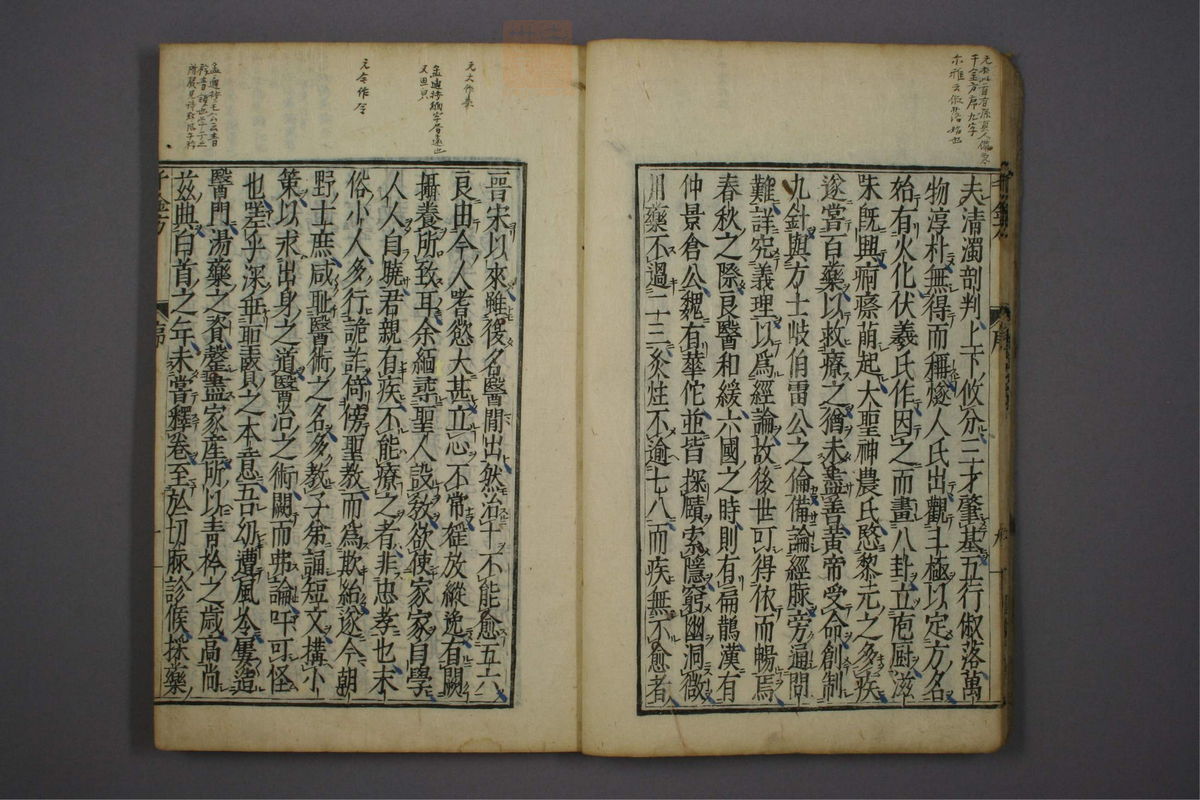 夫清濁剖判上下攸分三才肇基五行俶落萬
物淳朴無得而稱燧人氏出觀斗極以定方名
始有火化伏羲氏作因之而畫八卦立庖厨滋
味既興痾瘵萌起大聖神農氏愍黎元之多疾
遂嘗百藥以救療之猶未盡善黃帝受命創制
九針與方士岐伯雷公之倫備論經脉旁通問
難詳究義理以爲經論故後世可得依而暢焉
春秋之際良醫和緩六國之時則有扁鵲漢有
仲景倉公魏有華佗並皆探賾索隱窮幽洞微
用藥不過二三灸炷不逾七八而疾無不愈者
晉宋以來雖復名醫間出然治十不能愈五六
良由今人嗜慾大甚立心不常婬放縱逸有闕
攝養所致耳余緬尋聖人設教欲使家家自學
人人自曉君親有疾不能療之者非忠孝也末
俗小人多行詭詐倚傍聖教而爲欺紿遂令朝
野士庶咸恥醫術之名多教子弟誦短文搆小
策以求出身之道醫治之術闕而弗論吁可怪
也嗟乎深乖聖賢之本意吾幼遭風冷屢造
醫門湯藥之資罄盡家産所以青衿之歲高尚
茲典白首之年未嘗釋卷至於切脉診候採藥
千金方
序
元本作泰
元令作今